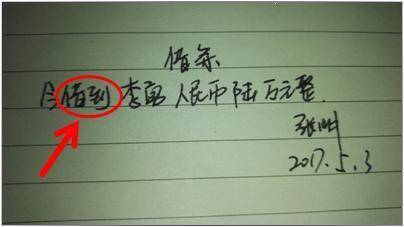 借条
今借到李勇人民币陆万元整.
张明
2017.5.3